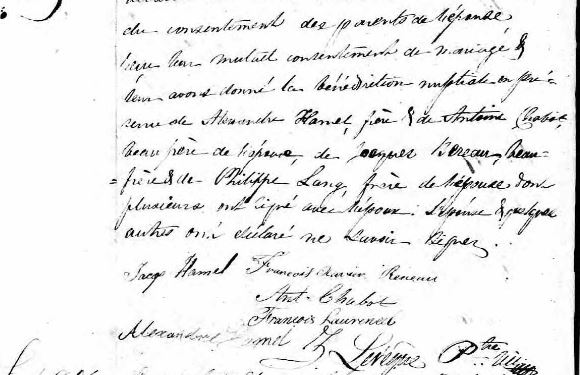 du consentement des parents de l'épouse
leur mutuel consentement de mariage &
leur avons donné la bénédiction nuptiale en pré-
sence de Alexandre Hamel, frère & de Antoine Chabot,
beau frère de l'époux, de Jacques Bereau, beau-
=frère & de Philippe Lang, frère de l'épouse dont
plusieurs ont signé avec l'époux. L'épouse & quelques
autres ont déclaré ne savoir signer.
Jacqs Hamel François Reneau
Ant. Chabot
François Laurence
Alexandre Hamel Lévêque Ptre